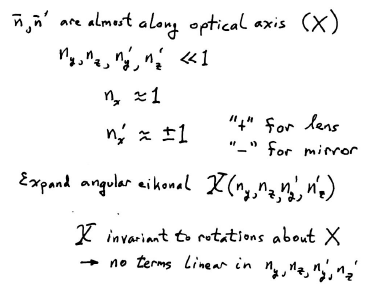 n̄, n̄' are almost along optical axis (X)
n_y, n_z, n_y', n_z' << 1
n_x ≈ 1
n_x' ≈ ±1 "+" for lens
"-" for mirror
Expand angular eikonal X(n_y, n_z, n_y', n_z')
X invariant to rotations about X
→ no terms linear in n_y, n_z, n_y', n_z'